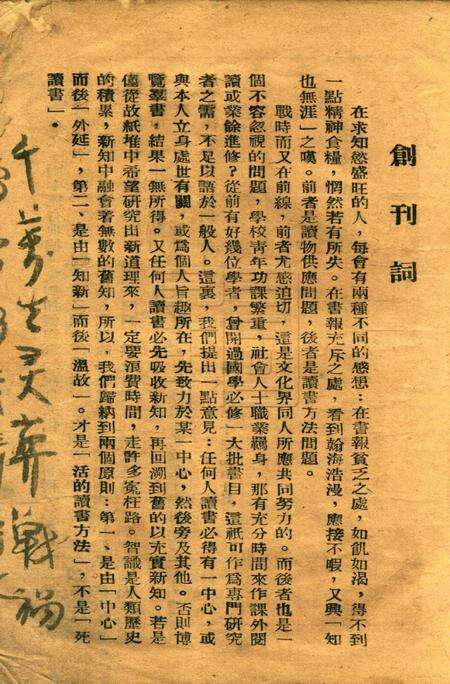 創刊詞
在求知慾盛旺的人，每會有兩種不同的感想：在書報貧乏之處，如飢如渴，得不到
一點精神食糧，惘然若有所失。在書報充斥之處，看到翰海浩漫，應接不暇，又興「知
也無涯」之嘆。前者是讀物供應問題，後者是讀書方法問題。
戰時而又在前線，前者尤感迫切，這是文化界同人所應共同努力的。而後者也是一
個不容忽視的問題，學校青年功課繁重，社會人士職業纏身，那有充分時間來作課外閱
讀或業餘進修？從前有好幾位學者，曾開過國學必修一大批書目，這祇可作爲專門研究
者之需，不足以語於一般人。這裏，我們提出一點意見：任何人讀書必得有一中心，或
與本人立身處世有關，或爲個人旨趣所在，先致力於某一中心，然後旁及其他。否則博
覽羣書，結果一無所得。又任何人讀書必先吸收新知，再回溯到舊的以充實新知。若是
僅從故紙堆中希望研究出新道理來，一定要浪費時間，走許多冤枉路。智識是人類歷史
的積累，新知中融會着無數的舊知，所以，我們歸納到兩個原則：第一、是由「中心」
而後「外延」，第二、是由「知新」而後「溫故」。才是「活的讀書方法」，不是「死
讀書」。
千万生灵弃戰禍